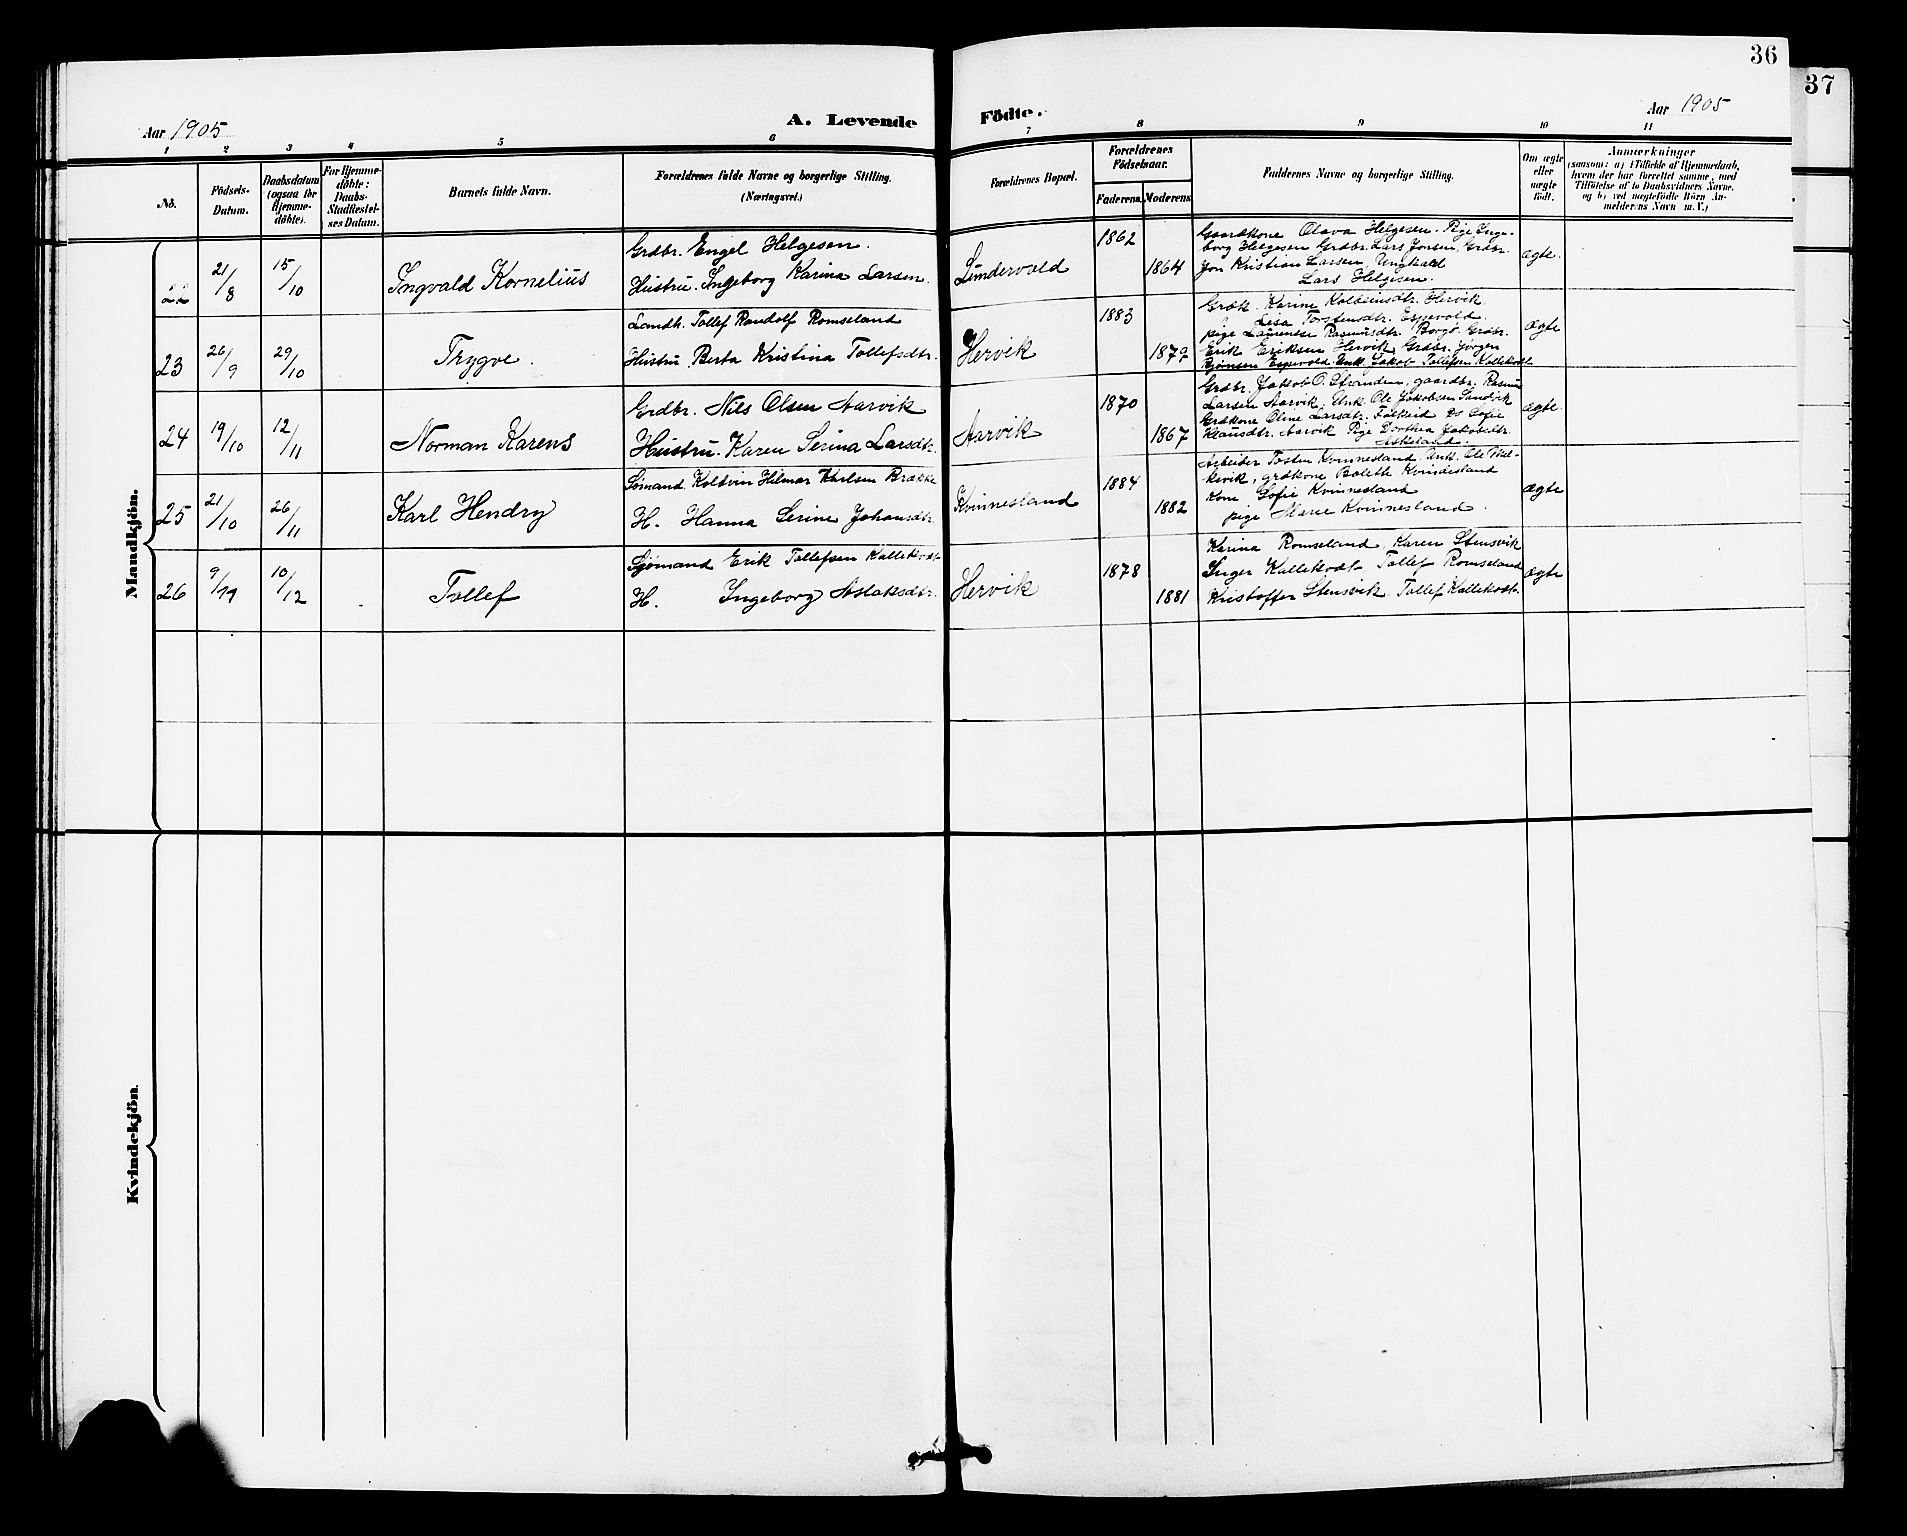 36
37
Aar 1905
A. Levende
Födte.
Aar 1905
1 2 3 4 5 6 7 8 9 10 11
No.
Födsels-Datum.
Daabsdatum (ogsaa for Hjemme-döbte).
For Hjemme-döbte: Daabs-Stadfæstel-ses Datum.
Barnets fulde Navn.
Forældrenes fulde Navne og borgerlige Stilling.
(Næringsvei.)
Forældrenes Bopæl.
Forældrenes Födselsaar.
Faderens. Moderens.
Faddernes Navne og borgerlige Stilling.
Om ægte eller uægte født.
Anmærkninger
(saasom: a) i Tilfælde af Hjemmedaab,
hvem der har forrettet samme, med
Tilföielse af to Daabsvidners Navne,
og b) ved uægtefödte Börn An-
melderens Navn m. V.)
Mandkjön.
22 21/8 15/10 Ingvald Kornelius
Grdbr. Engel Helgesen.
Hustru. Ingeborg Karina Larsen.
Lundervold 1862 1864
Gaardkone Olava Helgesen. Pige Inge-
borg Helgesen Grdbr. Lars Jonsen, Grdbr.
Jon Kristian Larsen, Ungkarl
Lars Helgesen.
ægte.
23 26/9 29/10 Trygve.
Landh. Tollef Randolf Romseland
Hustru Berta Kristina Tollefsdtr.
Hervik 1883 1879
Grdk. Karine Kolbeinsdtr. Hervik
Lisa Torstensdtr. Espevold.
pige Laurentse Rasmusdtr. Borgö. Grdbr.
Erik Eriksen Hervik, Grdbr. Jörgen
Bjönsen Espevold. Unk. Jakob Tollefsen Kallekodt
ægte
24 19/10 12/11 Norman Karens
Grdbr. Nils Olsen Aarvik
Hustru. Karen Serina Larsdtr.
Aarvik 1870 1867
Grdbr. Jakob O. Stranden, gaardbr. Rasmus
Larsen Aarvik, Unk. Ole Jakobsen Sandvik
Grdkone Oline Larsdtr. Falkeid Ds Sofie
Klausdtr. Aarvik Pige Dorthea Jakobsdtr.
Askeland.
ægte.
25 21/10 26/11 Karl Hendry
Sømand Koldvin Hilmar Karlsen Brække
H. Hanna Serine Johansdtr.
Kvinnesland 1884 1882
Arbeider Tosten Kvinnesland, Unk. Ole
kevik, grdkone Bolette Kvindesland
Kone Sofie Kvinnesland
pige Marie Kvinnesland.
ægte
26 9/11 10/12 Tollef
Sjømand Erik Tollefsen Kallekodt
H. Ingeborg Aslaksdtr.
Hervik 1878 1881
Karina Romseland, Karen Stensvik
Inger Kallekodt Tollef Romseland
Kristoffer Stensvik, Tollef Kallekodt.
ægte
Kvindekjön.